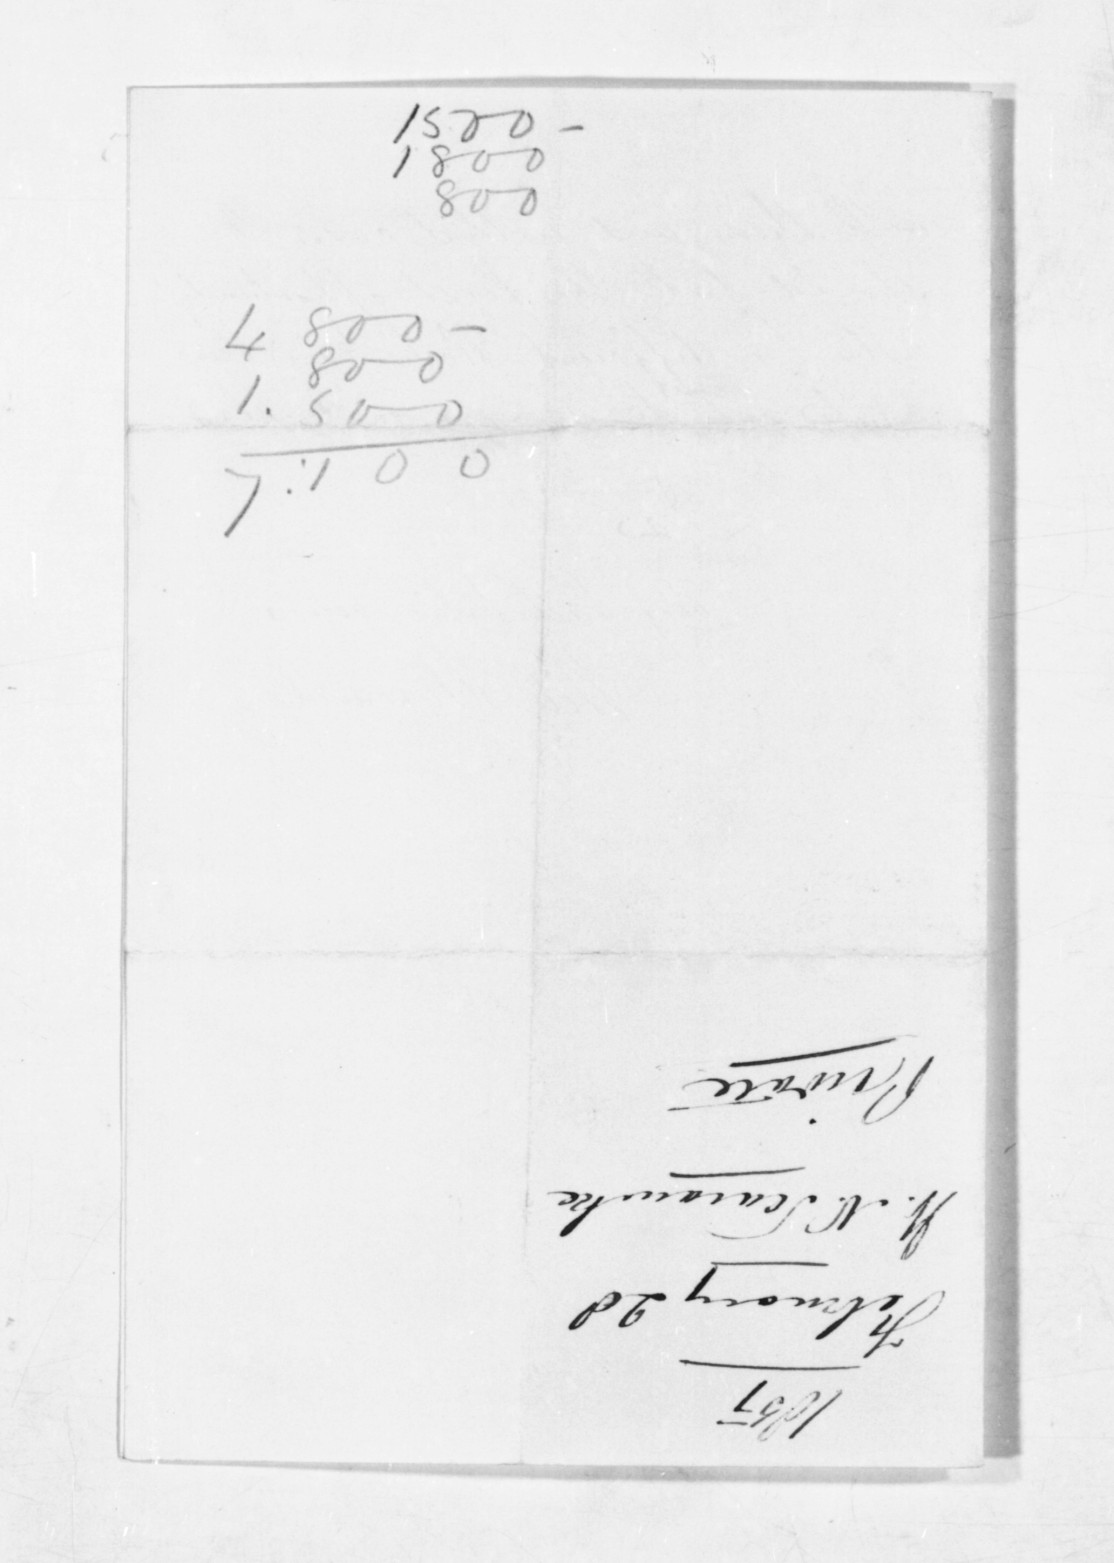 1520 -
1 800
800
4 800 -
800
1. 500
7.100
1857
February 28
Private